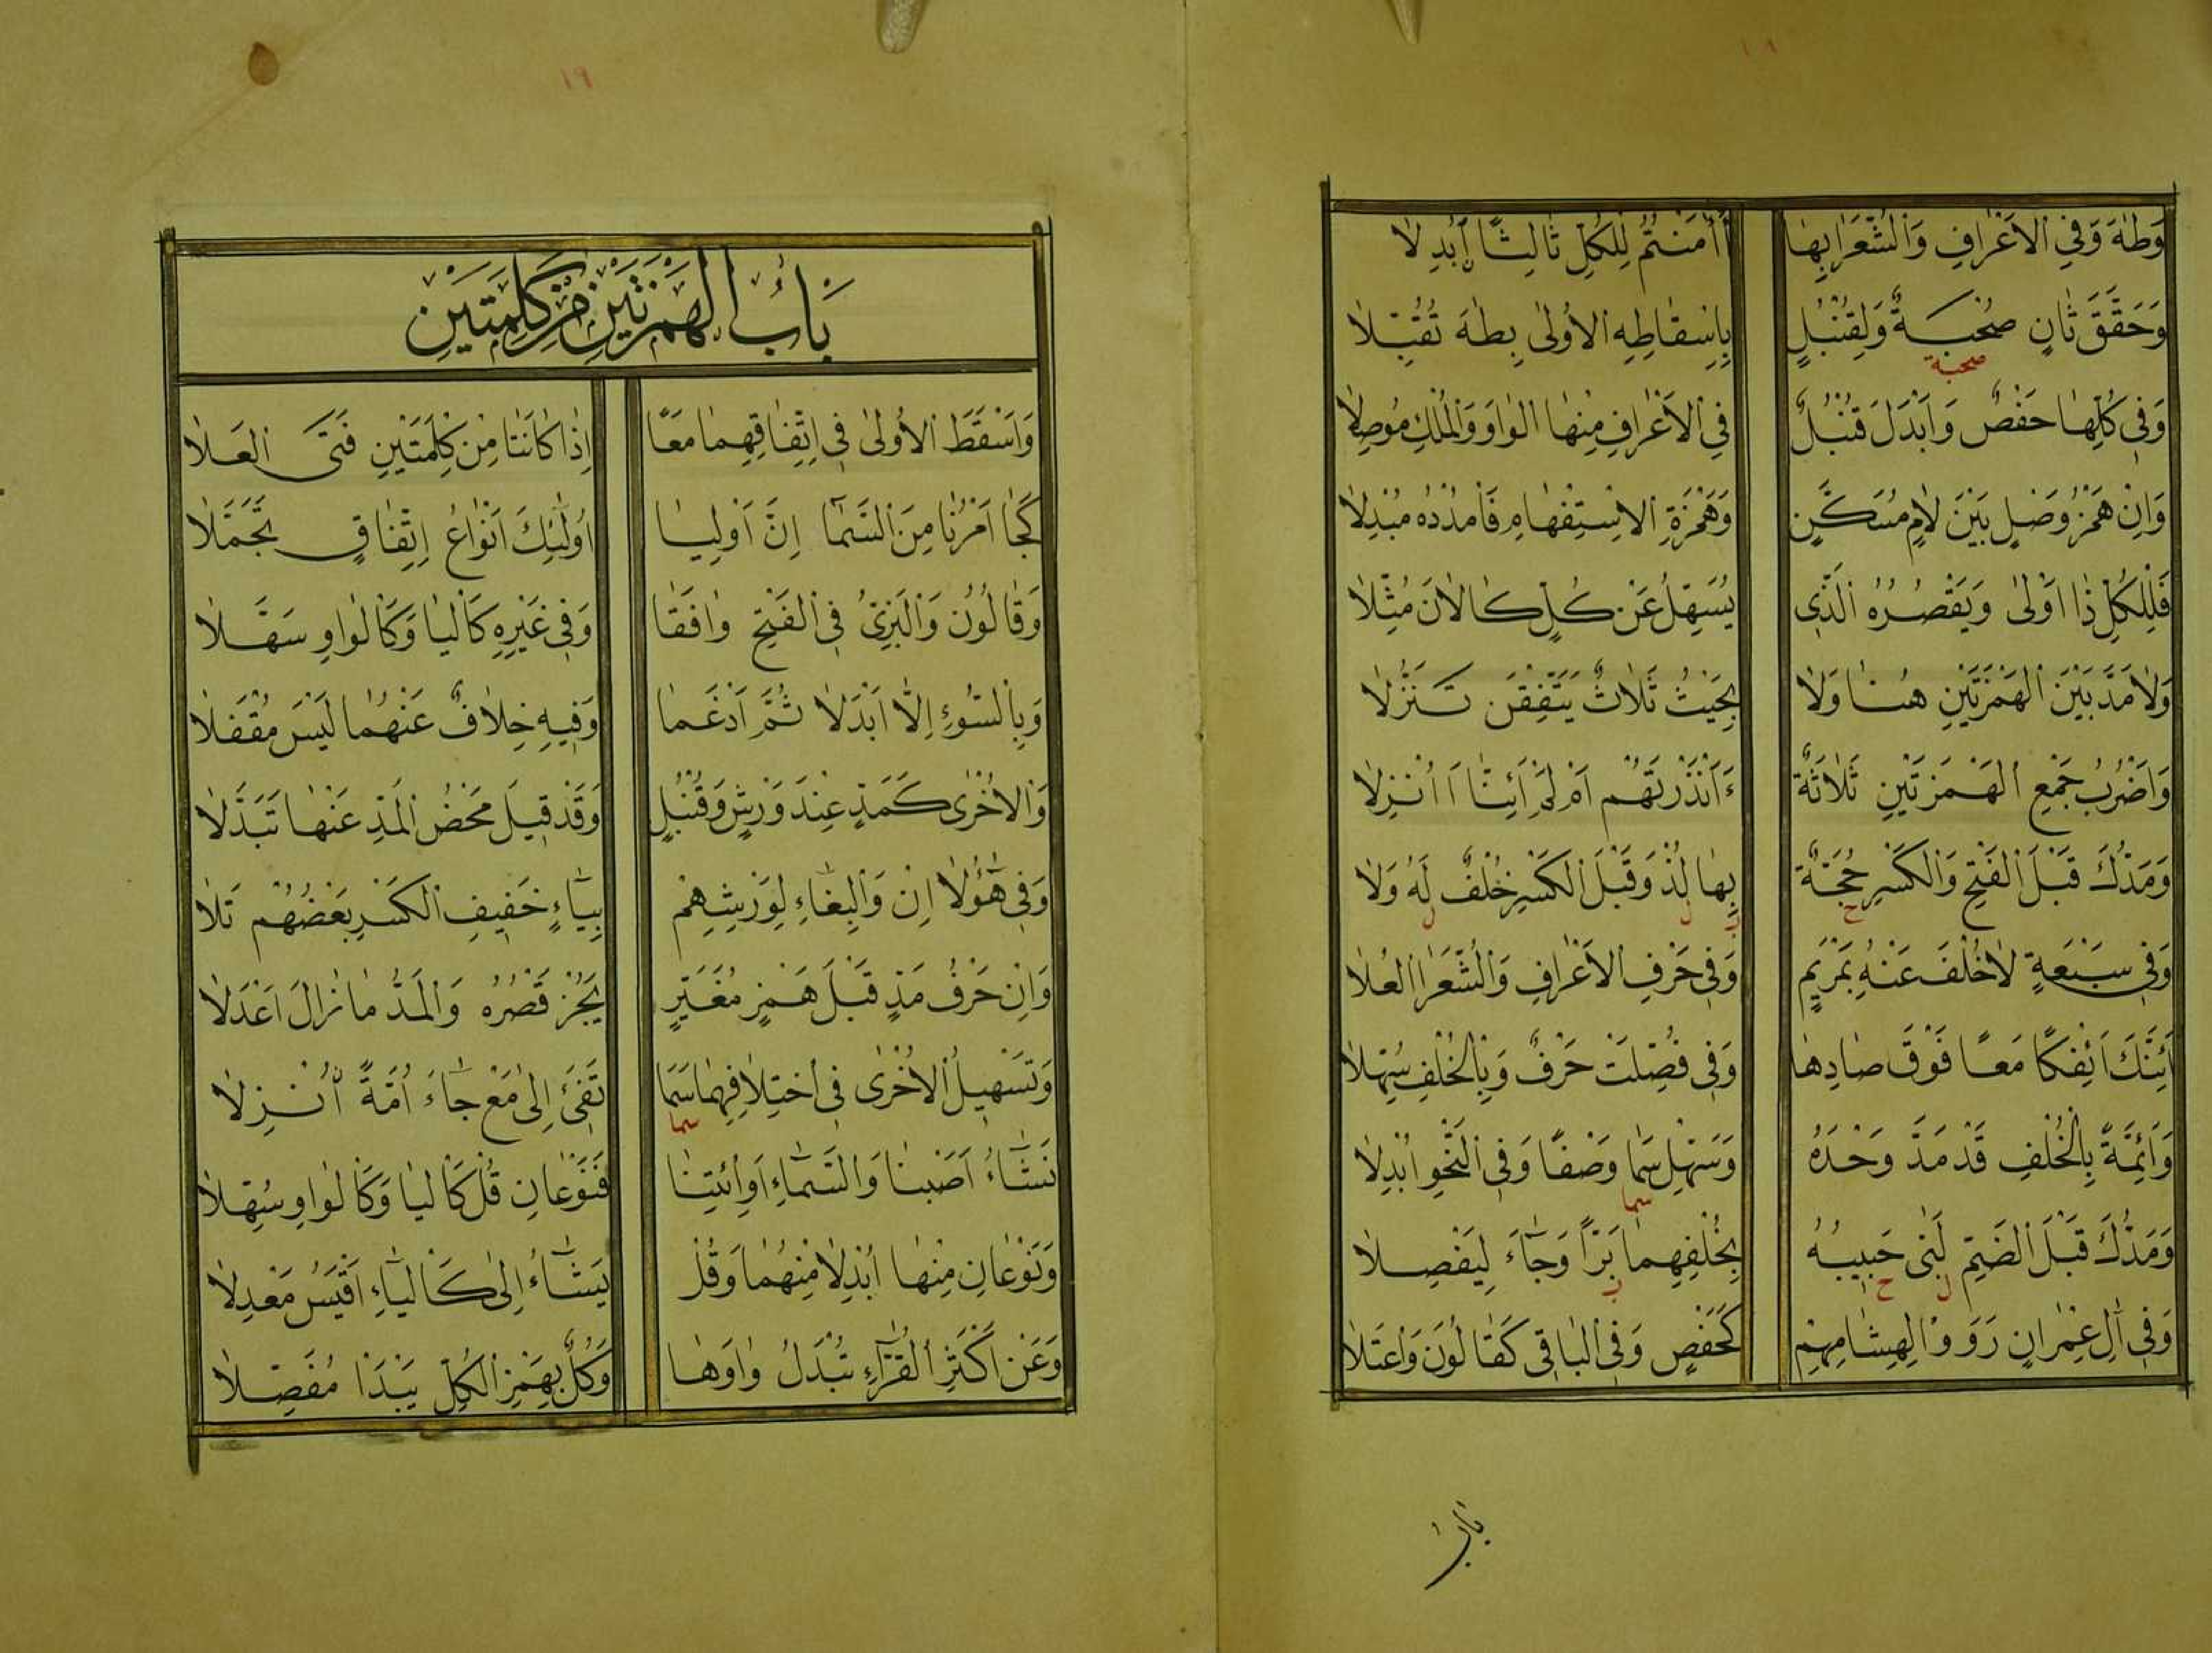 وَطٰهَ وَفِي الْاَعْرَافِ وَالشُّعَرَا بِهَا ءَاٰمَنْتُمْ لِلْكُلِّ ثَالِثًا اُبْدِلَا
وَحَقَّقَ ثَانٍ صُحْبَةٌ وَلِقُنْبُلٍ بِاِسْقَاطِهِ الْاُولٰى بِطٰهَ تُقُبِّلَا
صحبة
وَفِي كُلِّهَا حَفْصٌ وَاَبْدَلَ قُنْبُلٌ فِي الْاَعْرَافِ مِنْهَا الْوَاوَ وَالْمُلْكِ مُوصِلَا
وَاِنْ هَمْزُ وَصْلٍ بَيْنَ لَامٍ مُسَكَّنٍ وَهَمْزَةِ الْاِسْتِفْهَامِ فَامْدُدْهُ مُبْدِلَا
فَلِلْكُلِّ ذَا اَوْلٰى وَيَقْصُرُهُ الَّذِي يُسَهِّلُ عَنْ كُلٍّ كَالْاٰنَ مُثِّلَا
وَلَا مَدَّ بَيْنَ الْهَمْزَتَيْنِ هُنَا وَلَا بِحَيْثُ ثَلَاثٌ يَتَّفِقْنَ تَنَزُّلَا
وَاَضْرُبُ جَمْعِ الْهَمْزَتَيْنِ ثَلَاثَةٌ ءَاَنْذَرْتَهُمْ اَمْ لَمْ اَئِنَّا اَاُنْزِلَا
وَمَدُّكَ قَبْلَ الْفَتْحِ وَالْكَسْرِ حُجَّةٌ بِهَا لُذْ وَقَبْلَ الْكَسْرِ خُلْفٌ لَهُ وَلَا
ح ب ل ل
وَفِي سَبْعَةٍ لَا خُلْفَ عَنْهُ بِمَرْيَمٍ وَفِي حَرْفِ الْاَعْرَافِ وَالشُّعَرَا الْعُلَا
اَئِنَّكَ اَئِفْكًا مَعًا فَوْقَ صَادِهَا وَفِي فُصِّلَتْ حَرْفٌ وَبِالْخُلْفِ سُهِّلَا
وَاَئِمَّةً بِالْخُلْفِ قَدْ مَدَّ وَحْدَهُ وَسَهِّلْ سَمَا وَصْفًا وَفِي النَّحْوِ اُبْدِلَا
سما
وَمَدُّكَ قَبْلَ الضَّمِّ لَبّٰى حَبِيبُهُ بِخُلْفِهِمَا بَرًّا وَجَاءَ لِيَفْصِلَا
ل ح ب
وَفِي اٰلِ عِمْرَانٍ رَوَوْا لِهِشَامِهِمْ كَحَفْصٍ وَفِي الْبَاقِي كَقَالُونَ وَاعْتَلَا
بَابُ
١٩
بَابُ الْهَمْزَتَيْنِ مِنْ كَلِمَتَيْنِ
وَاَسْقَطَ الْاُولٰى فِي اتِّفَاقِهِمَا مَعًا اِذَا كَانَتَا مِنْ كِلْمَتَيْنِ فَتَى الْعَلَا
كَجَا اَمْرُنَا مِنَ السَّمَا اِنَّ اَوْلِيَا اُولٰئِكَ اَنْوَاعُ اتِّفَاقٍ تَجَمَّلَا
وَقَالُونُ وَالْبَزِّيُّ فِي الْفَتْحِ وَافَقَا وَفِي غَيْرِهِ كَالْيَا وَكَالْوَاوِ سَهَّلَا
وَبِالسُّوءِ اِلَّا اَبْدَلَا ثُمَّ اَدْغَمَا وَفِيهِ خِلَافٌ عَنْهُمَا لَيْسَ مُقْفَلَا
وَالْاُخْرٰى كَمَدٍّ عِنْدَ وَرْشٍ وَقُنْبُلٍ وَقَدْ قِيلَ مَحْضُ الْمَدِّ عَنْهَا تَبَدَّلَا
وَفِي هٰؤُلَا اِنْ وَالْبِغَاءِ لِوَرْشِهِمْ بِيَاءٍ خَفِيفِ الْكَسْرِ بَعْضُهُمْ تَلَا
وَاِنْ حَرْفُ مَدٍّ قَبْلَ هَمْزٍ مُغَيَّرٍ يَجُزْ قَصْرُهُ وَالْمَدُّ مَا زَالَ اَعْدَلَا
وَتَسْهِيلُ الْاُخْرٰى فِي اخْتِلَافِهِمَا سَمَا تَفِيءَ اِلٰى مَعْ جَاءَ اُمَّةً اُنْزِلَا
سما
نَشَاءُ اَصَبْنَا وَالسَّمَاءِ اَوِ ائْتِنَا فَنَوْعَانِ قُلْ كَالْيَا وَكَالْوَاوِ سُهِّلَا
وَنَوْعَانِ مِنْهَا اُبْدِلَا مِنْهُمَا وَقُلْ يَشَاءُ اِلٰى كَالْيَاءِ اَقْيَسُ مَعْدِلَا
وَعَنْ اَكْثَرِ الْقُرَّاءِ تُبْدَلُ وَاوَهَا وَكُلٌّ بِهَمْزِ الْكُلِّ يَبْدَا مُفَصِّلَا